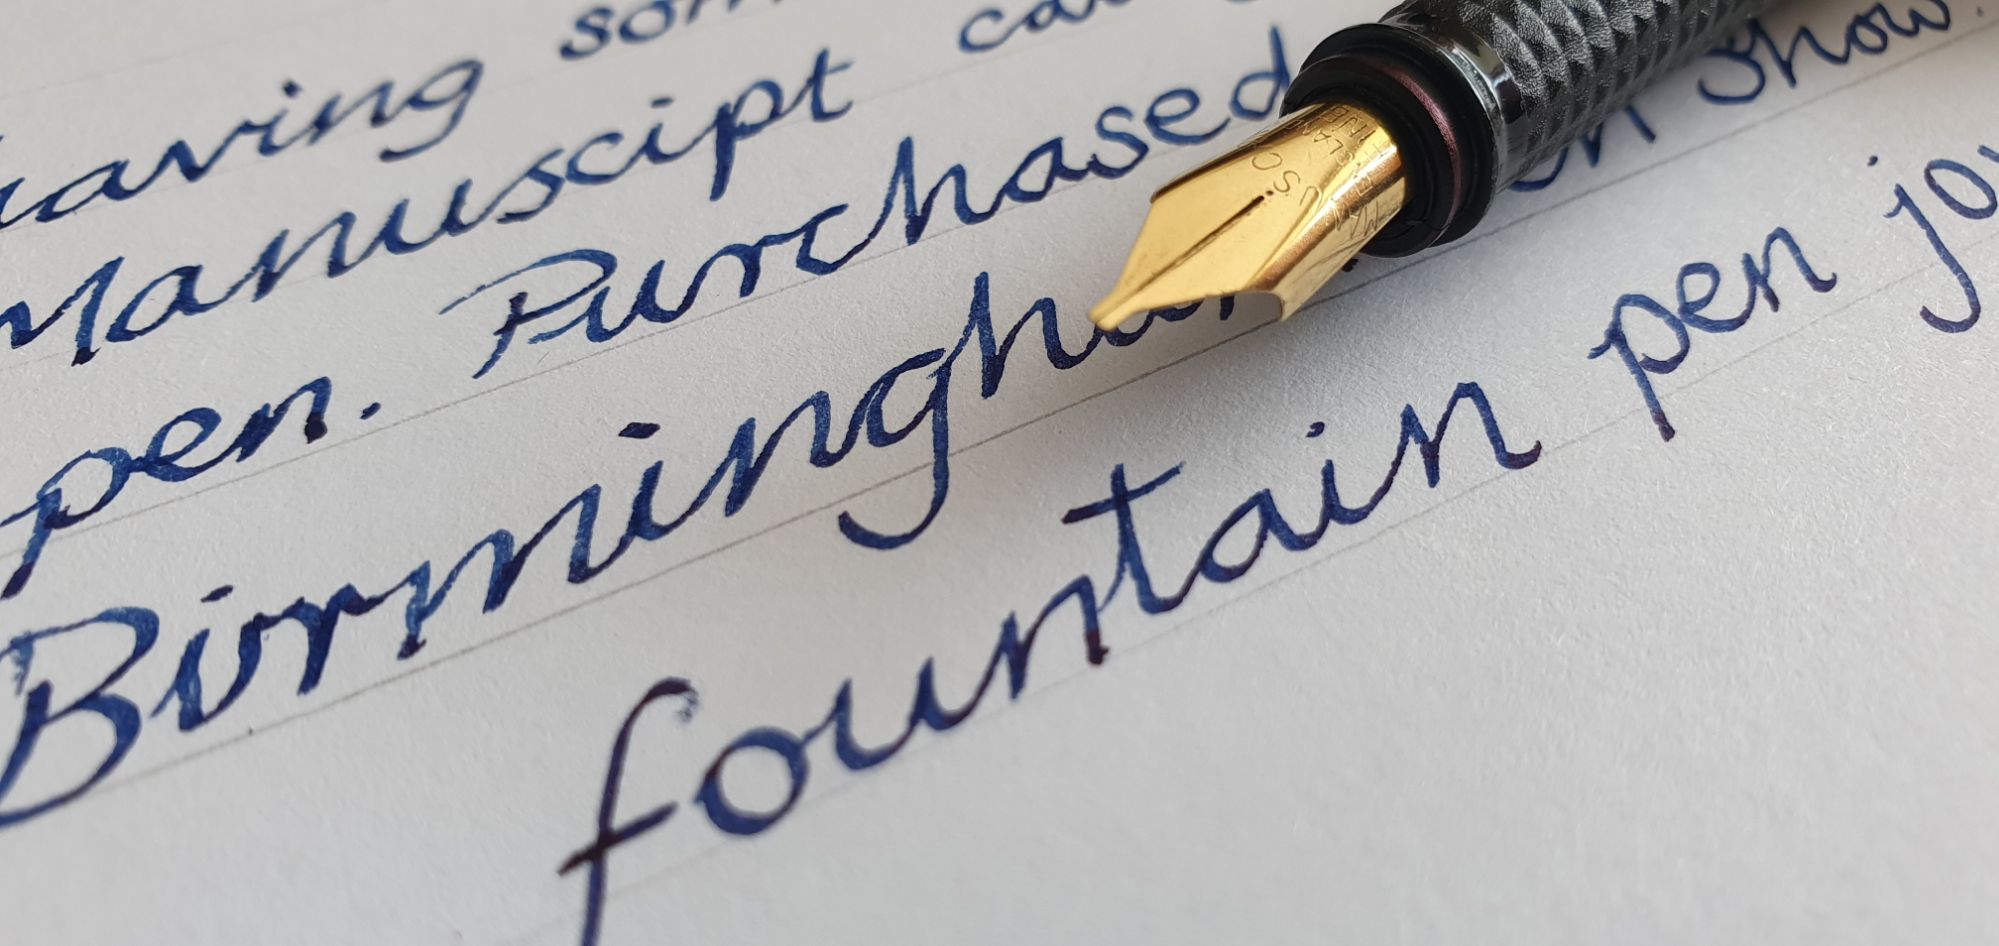 having som
Manuscipt ca
pen. Purchased
Birmingham pen show.
fountain pen joy